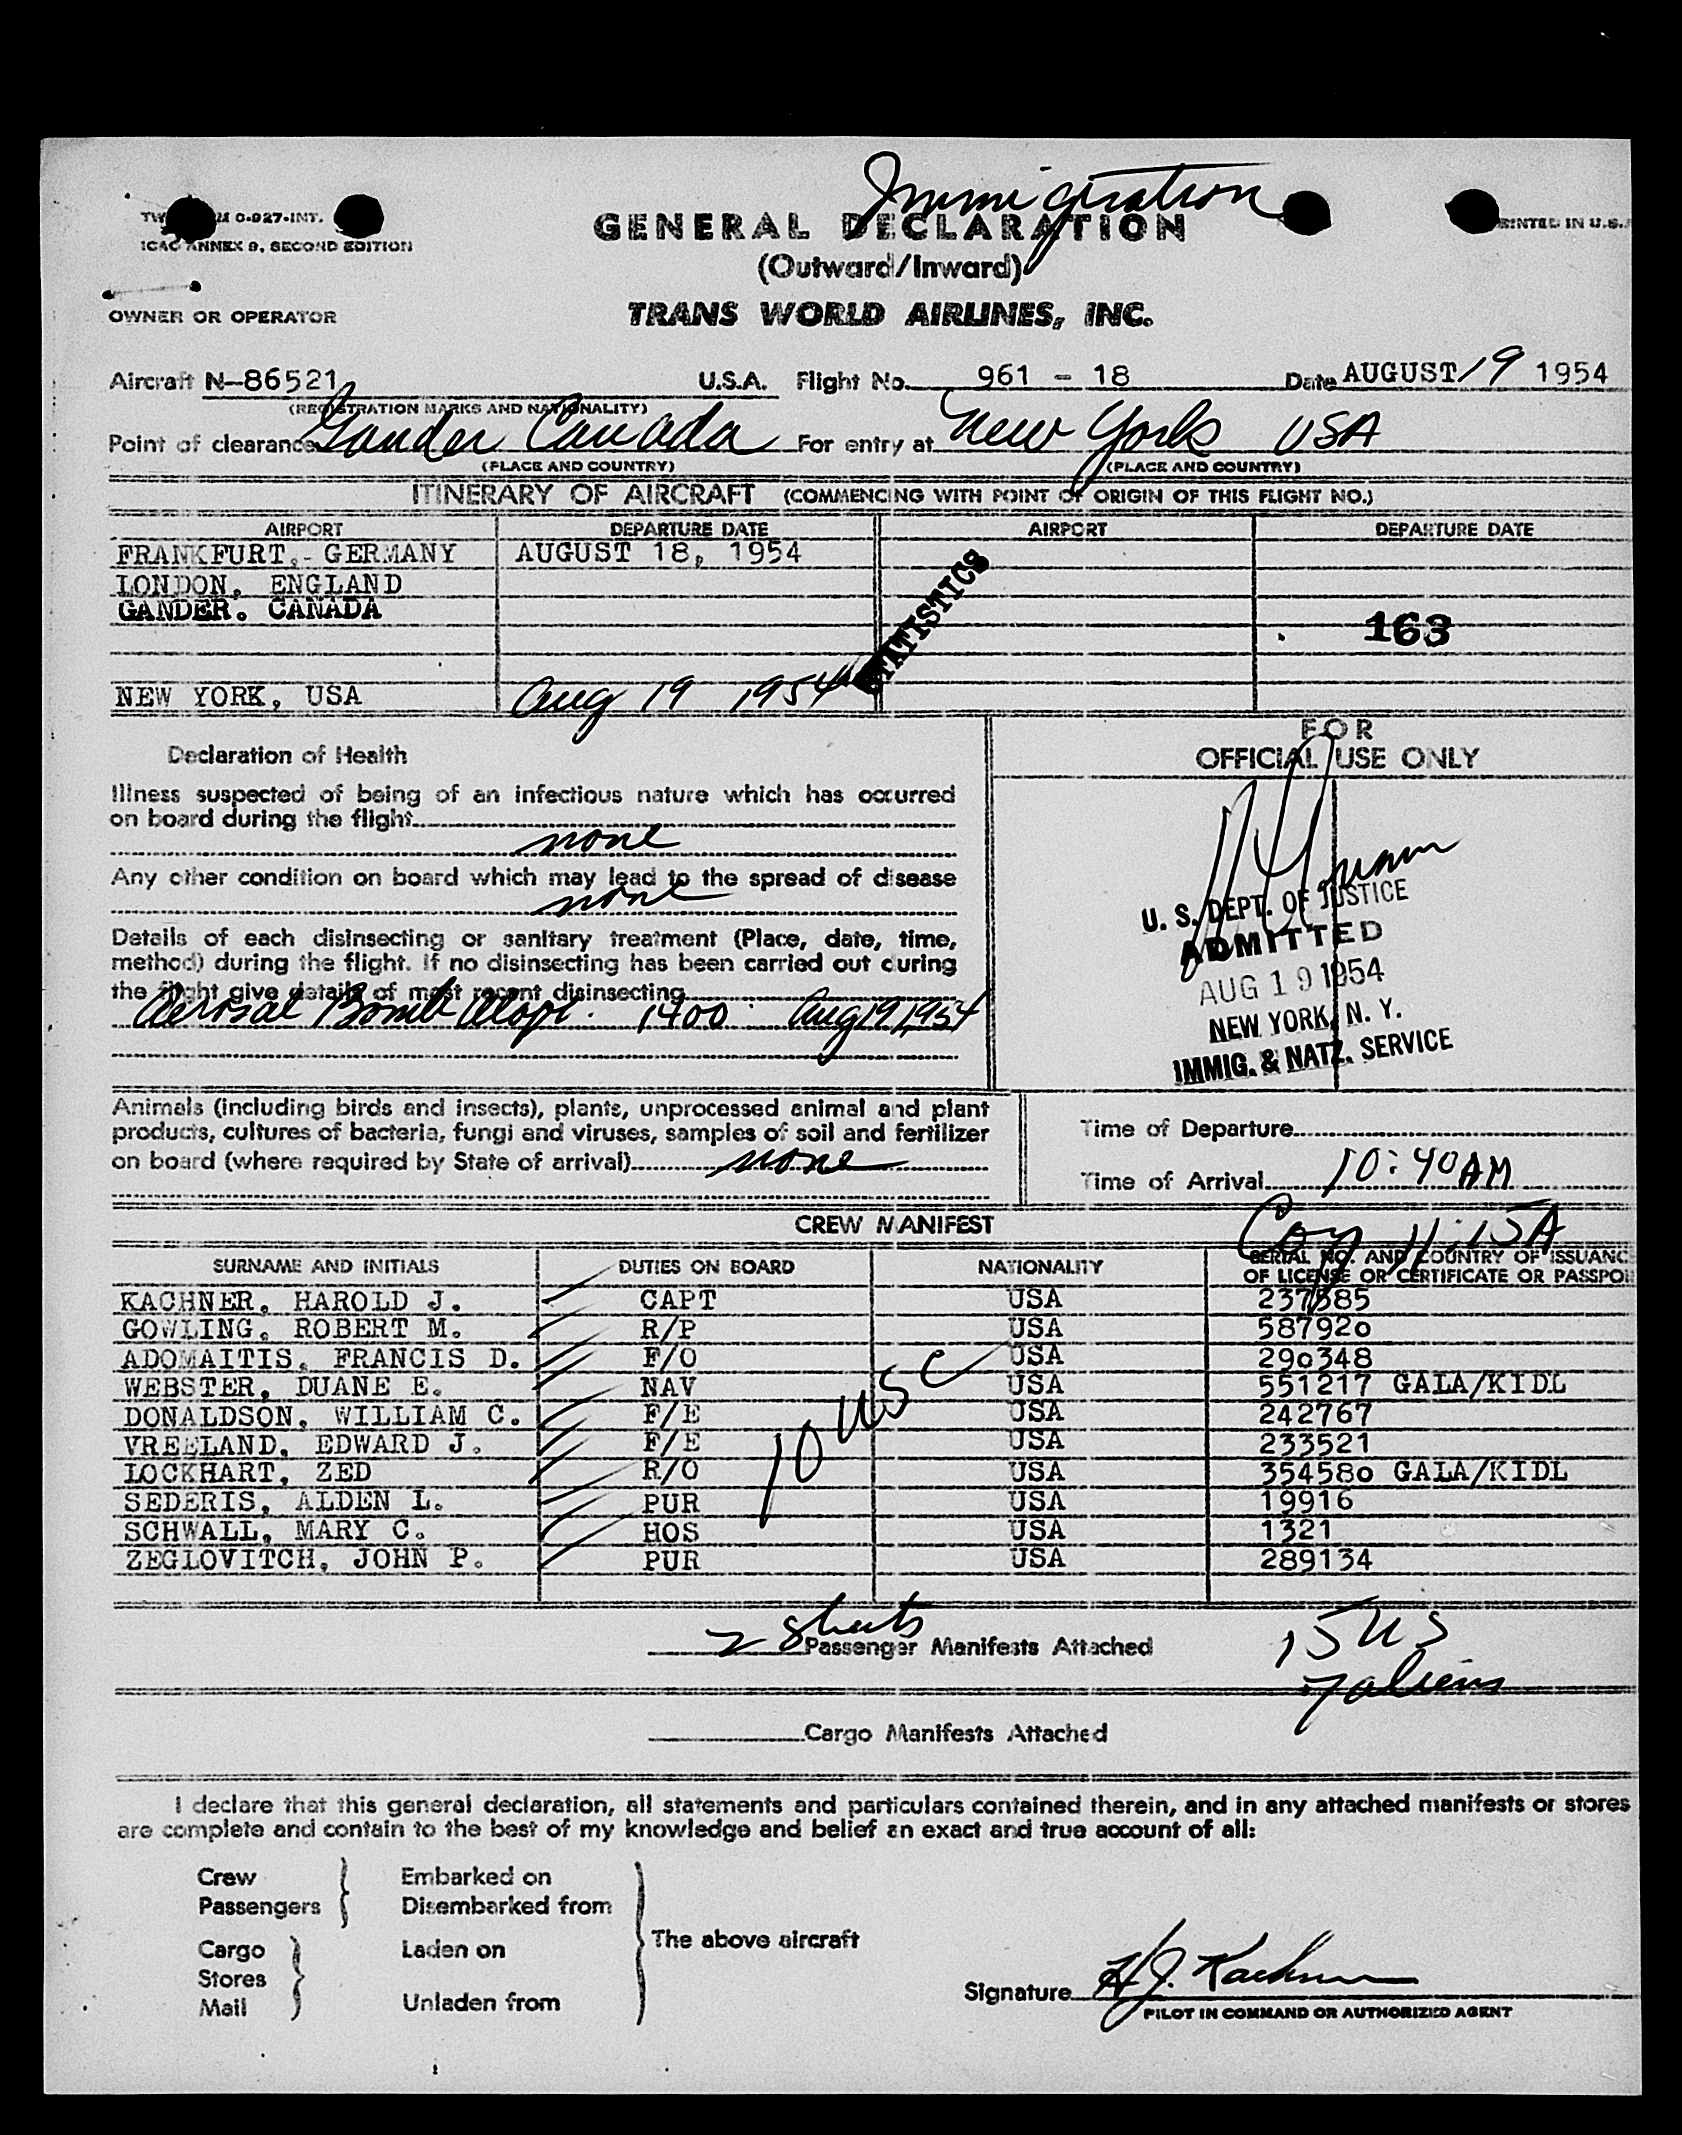 Immigration
C-927-INT.
ICAO ANNEX 9, SECOND EDITION
PRINTED IN U.S.
GENERAL DECLARATION
(Outward/Inward)
OWNER OR OPERATOR
TRANS WORLD AIRLINES, INC.
Aircraft N-86521 U.S.A. Flight No. 961 - 18 Date AUGUST 19 1954
(REGISTRATION MARKS AND NATIONALITY)
Point of clearance Gander Canada For entry at New York USA
(PLACE AND COUNTRY) (PLACE AND COUNTRY)
ITINERARY OF AIRCRAFT (COMMENCING WITH POINT OF ORIGIN OF THIS FLIGHT NO.)
AIRPORT DEPARTURE DATE AIRPORT DEPARTURE DATE
FRANKFURT, GERMANY AUGUST 18, 1954
LONDON, ENGLAND
GANDER. CANADA
STATISTICS
163
NEW YORK, USA Aug 19 1954
FOR
OFFICIAL USE ONLY
Declaration of Health
Illness suspected of being of an infectious nature which has occurred
on board during the flight
none
Any other condition on board which may lead to the spread of disease
none
Details of each disinsecting or sanitary treatment (Place, date, time,
method) during the flight. If no disinsecting has been carried out during
the flight give details of most recent disinsecting
Aerosal Bomb 1400 Aug 19, 1954
U. S. DEPT. OF JUSTICE
ADMITTED
AUG 19 1954
NEW YORK, N. Y.
IMMIG. & NATZ. SERVICE
Animals (including birds and insects), plants, unprocessed animal and plant
products, cultures of bacteria, fungi and viruses, samples of soil and fertilizer
on board (where required by State of arrival) none
Time of Departure
Time of Arrival 10:40 AM
11:15A
CREW MANIFEST
SURNAME AND INITIALS DUTIES ON BOARD NATIONALITY SERIAL NO. AND COUNTRY OF ISSUANC
OF LICENSE OR CERTIFICATE OR PASSPO
KACHNER, HAROLD J. CAPT USA 237585
GOWLING, ROBERT M. R/P USA 587920
ADOMAITIS, FRANCIS D. F/O USA 290348
WEBSTER, DUANE E. NAV USA 551217 GALA/KIDL
DONALDSON, WILLIAM C. F/E USA 242767
VREELAND, EDWARD J. F/E USA 233521
LOCKHART, ZED R/O USA 354580 GALA/KIDL
SEDERIS, ALDEN L. PUR USA 19916
SCHWALL, MARY C. HOS USA 1321
ZEGLOVITCH, JOHN P. PUR USA 289134
10 USC
2 Sheets Passenger Manifests Attached
15 US
7 aliens
Cargo Manifests Attached
I declare that this general declaration, all statements and particulars contained therein, and in any attached manifests or stores
are complete and contain to the best of my knowledge and belief an exact and true account of all:
Crew
Passengers
Embarked on
Disembarked from
Cargo
Stores
Mail
Laden on
Unladen from
The above aircraft
Signature H J. Kachner
PILOT IN COMMAND OR AUTHORIZED AGENT